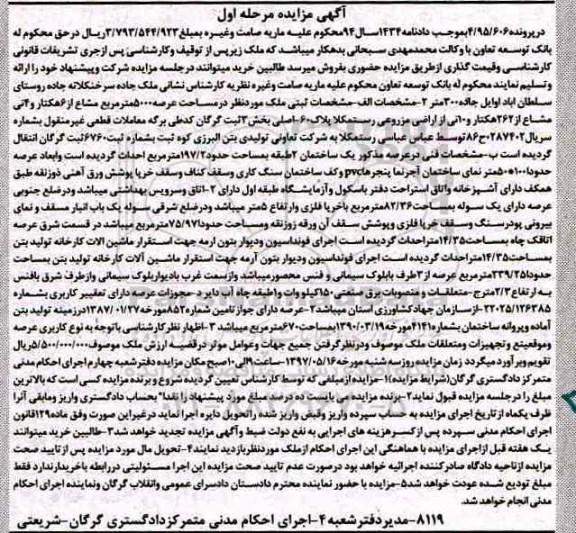 آگهی مزایده مرحله اول
در پرونده ۴/۹۵/۶۰۶بموجب دادنامه ۱۴۳۴سال ۹۴محکوم علیه ماریه صامت وغیره بمبلغ ۳/۷۹۳/۵۴۴/۹۲۳ریال در حق محکوم له
بانک توسعه تعاون با وکالت محمدمهدی سبحانی بدهکار میباشد که ملک زیر پس از توقیف وکارشناسی پس ازجری تشریفات قانونی
کارشناسی وقیمت گذاری ازطریق مزایده حضوری بفروش میرسد طالبین خرید میتوانند درجلسه مزایده شرکت وپیشنهاد خود را ارائه
وتسلیم نمایند محکوم له بانک توسعه تعاون محکوم علیه ماریه صامت وغیره نظریه کارشناس نشانی ملک جاده سرخنکلاته جاده روستای
سلطان اباد اوایل جاده ۳۰۰متر ۲-مشخصات الف-مشخصات ثبتی ملک موردنظر درمساحت عرصه ۵۰۰۰مترمربع مشاع از۶هکتار و۴نی
مشاع از ۲۶۲هکتار و۱۰نی از اراضی مزروعی رستمکلا پلاک ۶۰-اصلی بخش ۳ثبت گرگان کدطی برگه معاملات قطعی غیرمنقول بشماره
سریال ۲۸۷۴۰۲-ح۸۶توسط عباس عباسی رستمکلا به شرکت تعاونی تولیدی بتن البرزی کوه ثبت بشماره ثبت ۶۷۶۰ثبت گرگان انتقال
گردیده است ب-مشخصات فنی درعرصه مذکور یک ساختمان ۲طبقه بمساحت حدود۱۹۷/۲مترمربع احداث گردیده است وابعاد عرصه
حدودا ۱۰۰*۵۰متر نمای ساختمان آجرنما پنجرهاpvc وکف ساختمان سنگ کاری وسقف کناف وسقف خرپا پوشش ورق آهنی ذوزنقه طبق
همکف دارای آشپزخانه واتاق استراحت دفتر باسکول وآزمایشگاه طبقه اول دارای ۲-اتاق وسرویس بهداشتی میباشد ودرضلع جنوبی
عرصه دارای یک سوله بمساحت ۸۲/۳۶مترمربع باخرپا فلزی وارتفاع ۵متر میباشد ودرضلع شرقی سوله یک باب انبار مسقف و نمای
بیرونی پودرسنگ وسقف خرپا فلزی وپوشش سقف آن ورقه زوزنقه ومساحت حدود۷۵/۹۷مترمربع میباشد در قسمت شرق عرصه
اتاقک چاه بمساحت ۱۴/۳۵متراحداث گردیده است اجرای فونداسیون ودیوار بتون آرمه جهت استقرار ماشین الات کارخانه تولید بتن
بمساحت ۱۴/۳۵متراحداث گردیده است اجرای فونداسیون ودیوار بتون آرمه جهت استقرار ماشین آلات کارخانه تولید بتن بمساحت
حدود۲۳۹/۲۵مترمربع عرصه از ۳طرف بابلوک سیمانی و فنس محصورمیباشد وازسمت غرب بادیواربلوک سیمانی وازطرف شرق بافنس
به ارتفاع ۲/۳مترج-متعلقات و منصوبات برق صنعتی ۱۵۰کیلو وات واطبقه چاه آب دایر د-مجوزات عرصه دارای تغییر کاربری بشماره
۲۲۰۲۵/۱۲۶۳۸۵-ازسازمان جهادکشاورزی استان میباشد ۲-عرصه دارای جواز تامین شماره ۸۵۲مورخه ۱۳۸۷/۰۱/۲۷درزمینه تولید بتن
آماده وپروانه ساختمان بشماره ۴۱۴۱مورخه ۱۳۹۰/۰۳/۱۹بمساحت ۶۷۰مترمربع میباشد ۳-اظهار نظرکارشناسی باتوجه به نوع کاربری عرصه
وموقعیتع وتجهیزات ومتعلقات ملک موصوف ودرنظرگرفتن جمیع جهات وعوامل موثر درقضیه ارزش ملک موصوف ۵/۵۰۰/۰۰۰/۰۰۰ریال
تقویم وبرآورد میگردد زمان مزایده روزسه شنبه مورخه ۱۳۹۷/۰۵/۱۶-ساعت ۹الی ۱۰صبح مکان مزایده دفترشعبه چهارم اجرای احکام مدنی
متمرکز دادگستری گرگان(شرایط مزایده)۱-مزایده ازمبلغی که توسط کارشناس تعیین گردیده شروع و برنده مزایده کسی است که بالاترین
مبلغ را درجلسه مزایده قبول نماید۲-برنده مزایده می بایست ده درصد مبلغ مورد پیشنهاد را نقدا"بحساب دادگستری واریز ومابقی آنرا
ظرف یکماه از تاریخ اجرای مزایده به حساب سپرده واریز وقبض واریز شده راتحویل دایره اجرا نماید درغیر این صورت وفق ماده ۱۲۹قانون
اجرای احکام مدنی سپرده پس از کسرهزینه های اجرایی به نفع دولت ضبط وآگهی مزایده تجدید خواهد شد۳-طالبین خرید میتوانند
یک هفته قبل ازاجرای مزایده با هماهنگی این اجرای احکام ازملک موردنظر بازدید نمایند۴-تحویل مال مورد مزایده پس از تایید صحت
مزایده ازناحیه دادگاه صادرکننده اجرائیه خواهد بود درصورت عدم تایید صحت مزایده این اجرا مسئولیتی دررابطه باخریدارندارد فقط
مبلغ تودیع شده عودت خواهد شد۵-مزایده با حضور نماینده محترم دادستان دادسرای عمومی وانقلاب گرگان ونماینده اجرای احکام
مدنی انجام خواهد شد.
۸۱۱۹-مدیر دفتر شعبه ۴-اجرای احکام مدنی متمرکز دادگستری گرگان-شریعتی